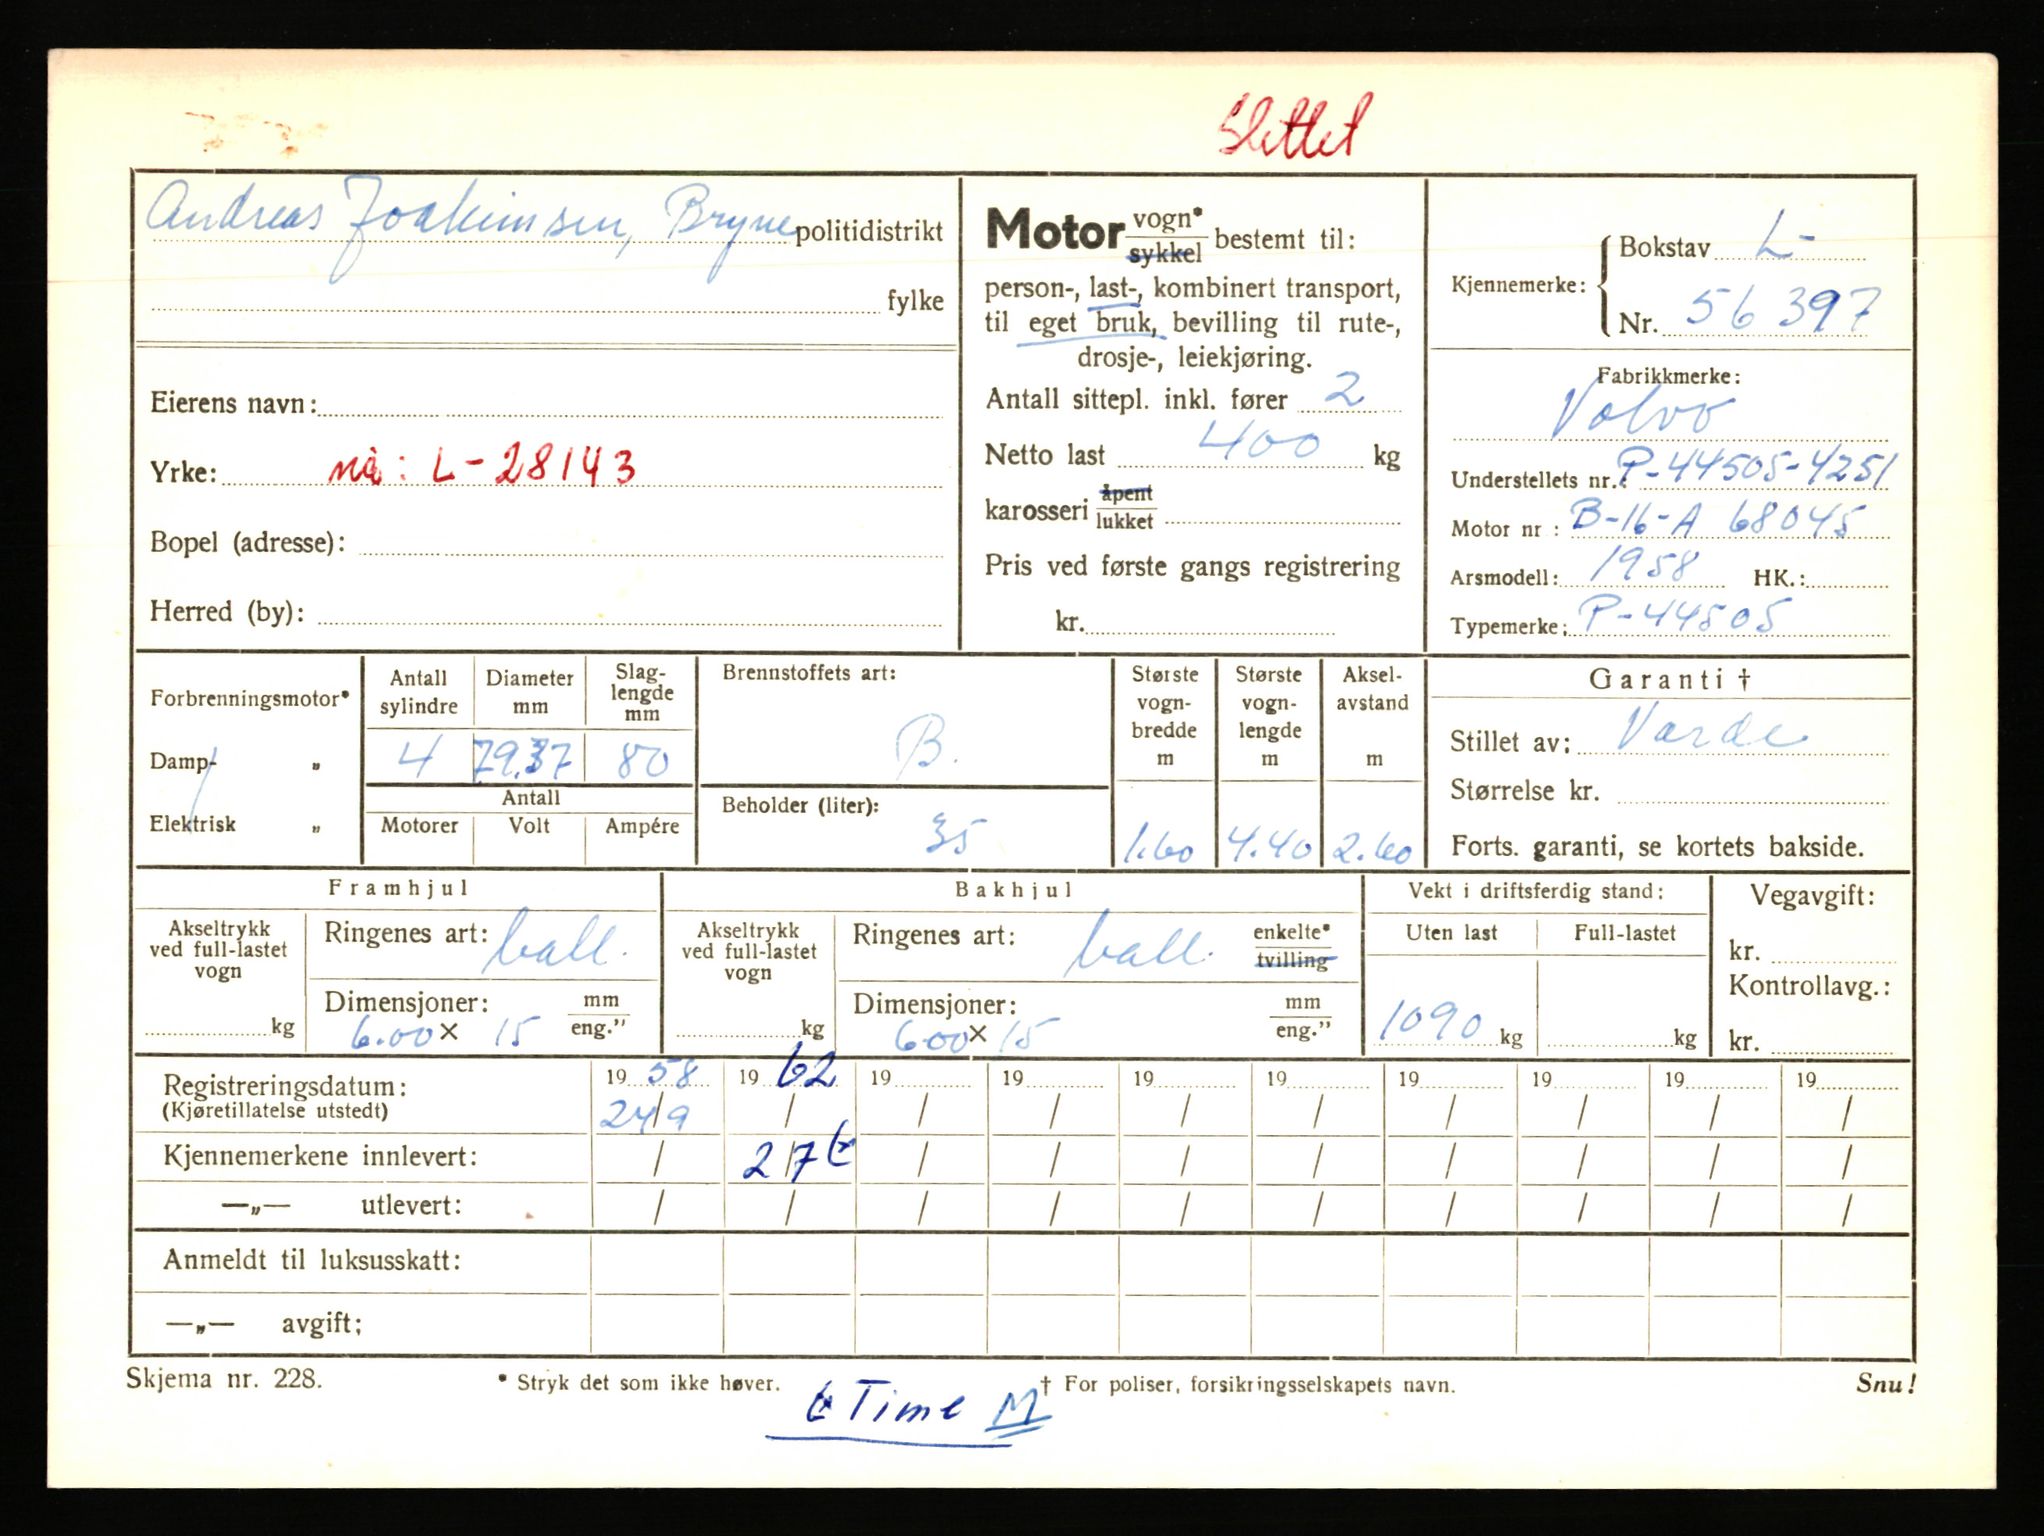 Slettet
Andreas Joakimsen, Bryne politidistrikt
fylke
Eierens navn:
Yrke: nå: L-28143
Bopel (adresse):
Herred (by):
Motor vogn* sykkel bestemt til:
person-, last-, kombinert transport,
til eget bruk, bevilling til rute-,
drosje-, leiekjøring.
Antall sittepl. inkl. fører 2
Netto last 400 kg
karosseri åpent lukket
Pris ved første gangs registrering
kr.
Kjennemerke: Bokstav L-
Nr. 56397
Fabrikkmerke:
Volvo
Understellets nr.: P-44505-4251
Motor nr : B-16-A 68045
Arsmodell: 1958 HK.:
Typemerke: P-44505
Forbrenningsmotor*
Damp- „
Elektrisk „
Antall sylindre
Diameter mm
Slag-lengde mm
4 79.37 80
Antall
Motorer Volt Ampére
Brennstoffets art:
B.
Beholder (liter):
35
Største vogn-bredde m
1.60
Største vogn-lengde m
4.40
Aksel-avstand m
2.60
Garanti †
Stillet av: Varde
Størrelse kr.
Forts. garanti, se kortets bakside.
Framhjul
Akseltrykk ved full-lastet vogn
kg
Ringenes art: ball.
Dimensjoner: mm eng."
6.00 × 15
Bakhjul
Akseltrykk ved full-lastet vogn
kg
Ringenes art: ball. enkelte* tvilling
Dimensjoner: mm eng."
6.00 × 15
Vekt i driftsferdig stand:
Uten last Full-lastet
1090 kg kg
Vegavgift:
kr.
Kontrollavg.:
kr.
Registreringsdatum: 1958 1962 19 19 19 19 19 19 19 19
(Kjøretillatelse utstedt) 24/9 / / / / / / / / /
Kjennemerkene innlevert: / 2/7 / / / / / / / /
—„— utlevert: / / / / / / / / / /
Anmeldt til luksusskatt:
—„— avgift:
Skjema nr. 228.
* Stryk det som ikke høver.
† For poliser, forsikringsselskapets navn.
Snu!
Time M